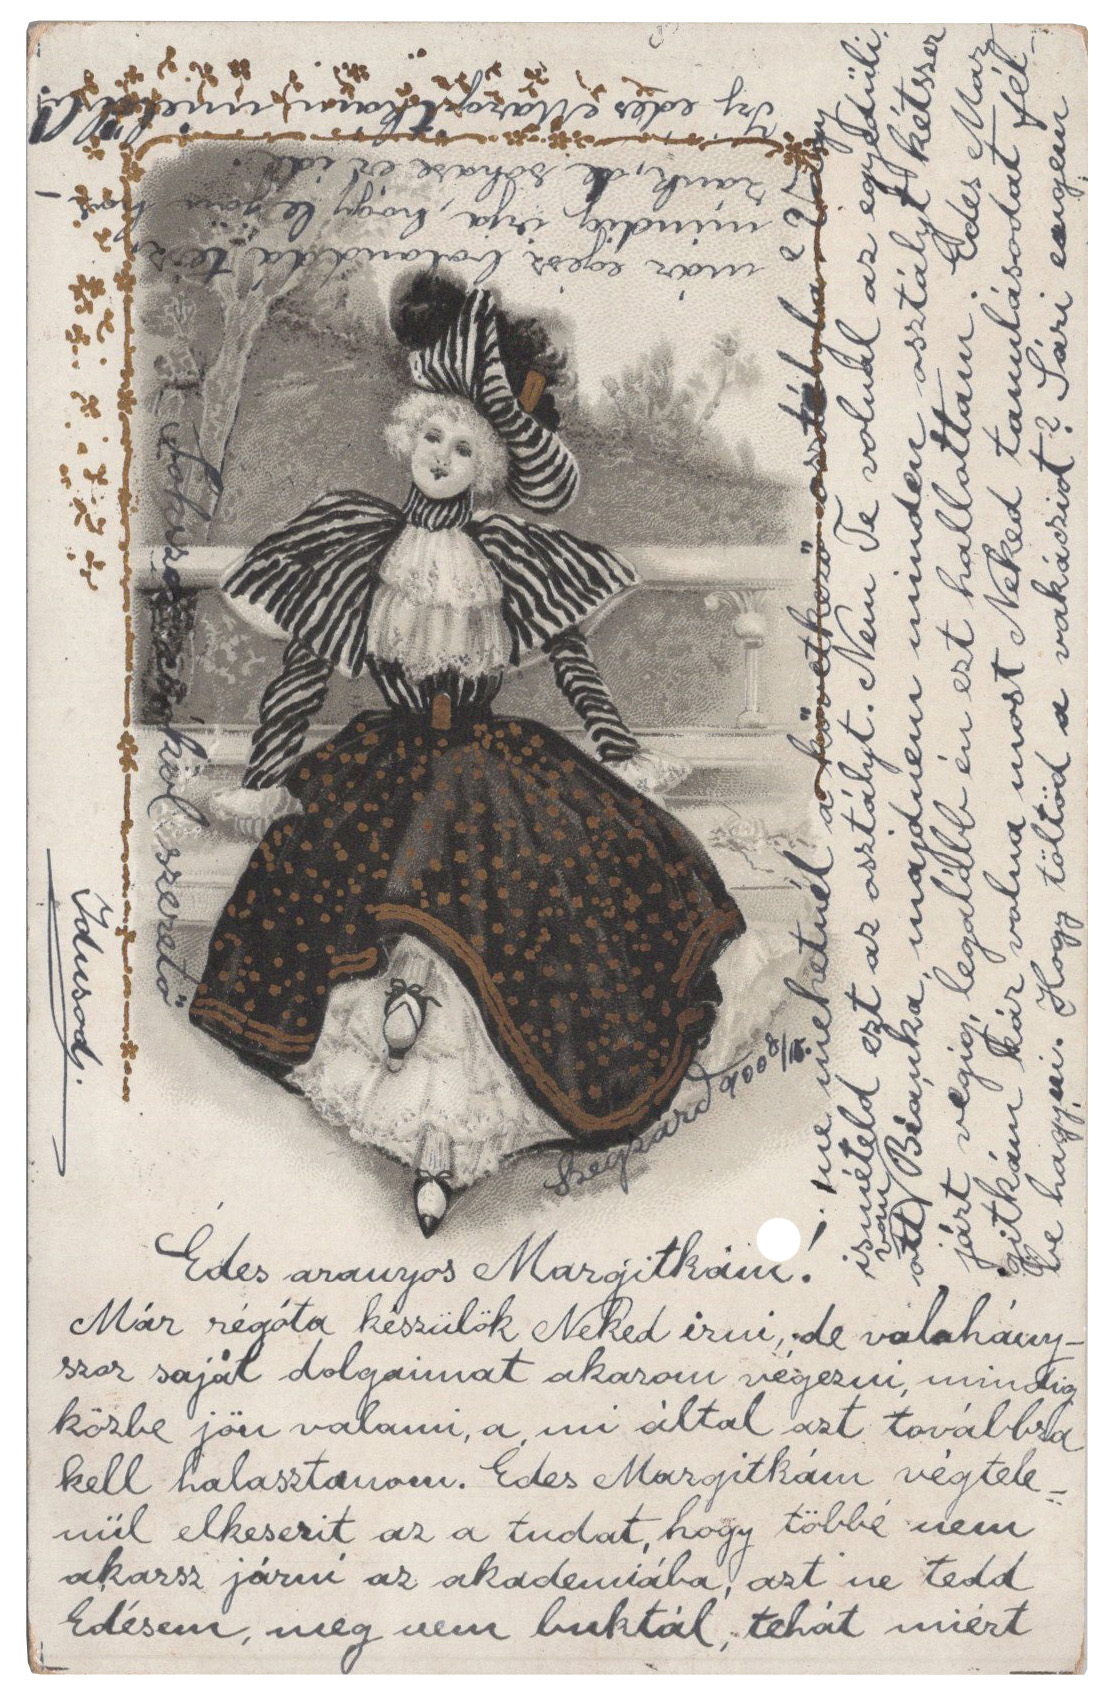 Szegzárd 900 8/15.
Édes aranyos Margitkám!
Már régóta készülök Neked irni, de valahány-
szor saját dolgaimat akarom végezni, mindig
közbe jön valami, a mi által azt továbbra
kell halasztanom. Édes Margitkám végtele-
nül elkeserit az a tudat, hogy többé nem
akarsz járni az akademiába, azt ne tedd
Edésem, meg nem buktál, tehát miért
ne mehetnél a "következő" osztályba?
ismételd ezt az osztályt. Nem Te volnál az egyedüli,
ott van Bianka, majdnem minden osztályt kétszer
járt végig, legalább én ezt hallottam. Édes Mar
gitkám kár volna most Neked tanulásodat fél-
be hagyni. Hogy töltöd a vakácziot? Sári engem
már egész bolonddá tesz,
mindig irja, hogy le jön hoz-
zánk, de sohase ér ide.
Igy edes Margitkám, minél
szerető
Idusod.